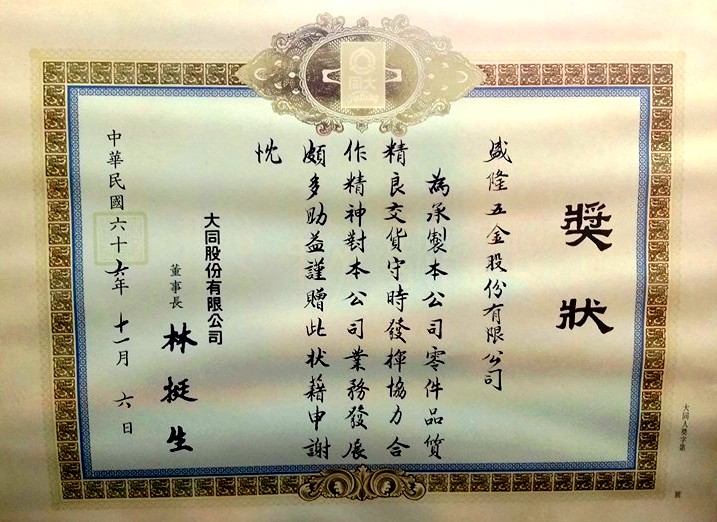 獎狀
盛隆五金股份有限公司
為承製本公司零件品質
精良交貨守時發揮協力合
作精神對本公司業務發展
頗多助益謹贈此狀藉申謝
忱
大同股份有限公司
董事長 林挺生
中華民國六十六年十一月六日
大同人獎字第 號
大同